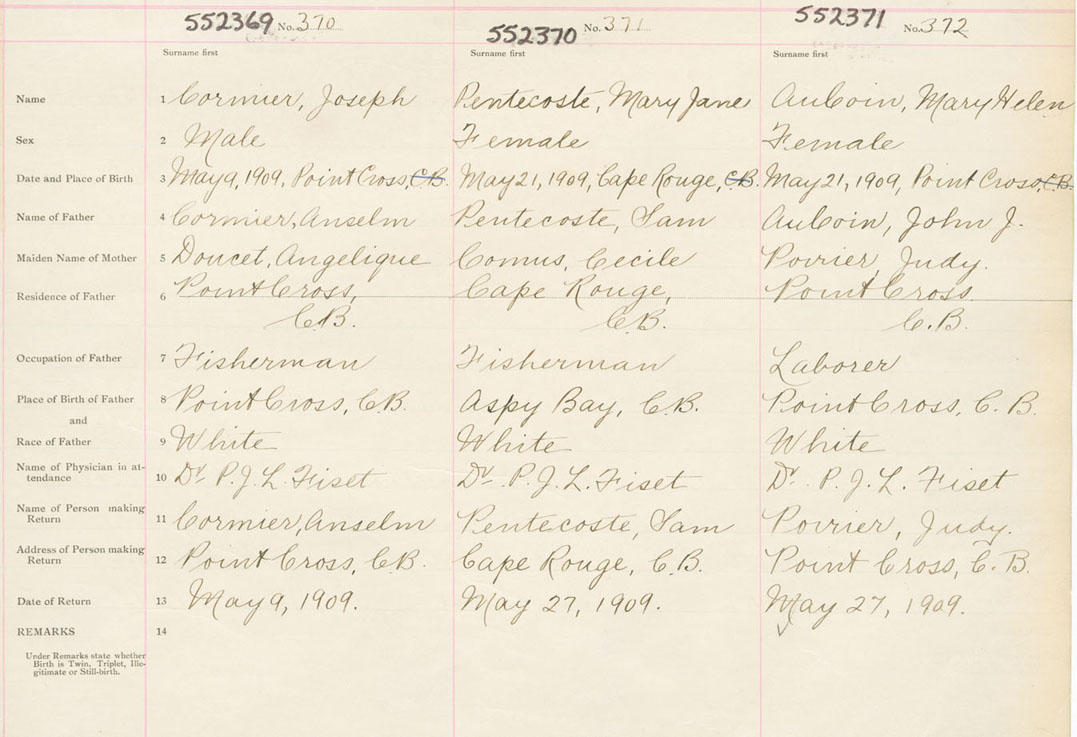 552369 No. 370 552370 No. 371 552371 No. 372
Surname first Surname first Surname first
Name 1 Cormier, Joseph Pentecoste, Mary Jane AuCoin, Mary Helen
Sex 2 Male Female Female
Date and Place of Birth 3 May 9, 1909, Point Cross, C.B. May 21, 1909, Cape Rouge, C.B. May 21, 1909, Point Cross, C.B.
Name of Father 4 Cormier, Anselm Pentecoste, Sam AuCoin, John J.
Maiden Name of Mother 5 Doucet, Angelique Comus, Cecile Poirier, Judy.
Residence of Father 6 Point Cross, Cape Rouge, Point Cross
C.B. C.B. C.B.
Occupation of Father 7 Fisherman Fisherman Laborer
Place of Birth of Father 8 Point Cross, C.B. Aspy Bay, C.B. Point Cross, C. B.
and
Race of Father 9 White White White
Name of Physician in at-
tendance 10 Dr. P. J. L. Fiset Dr. P. J. L. Fiset Dr. P. J. L. Fiset
Name of Person making
Return 11 Cormier, Anselm Pentecoste, Sam Poirier, Judy.
Address of Person making
Return 12 Point Cross, C.B. Cape Rouge, C.B. Point Cross, C. B.
Date of Return 13 May 9, 1909. May 27, 1909. May 27, 1909.
REMARKS 14
Under Remarks state whether
Birth is Twin, Triplet, Ille-
gitimate or Still-birth.